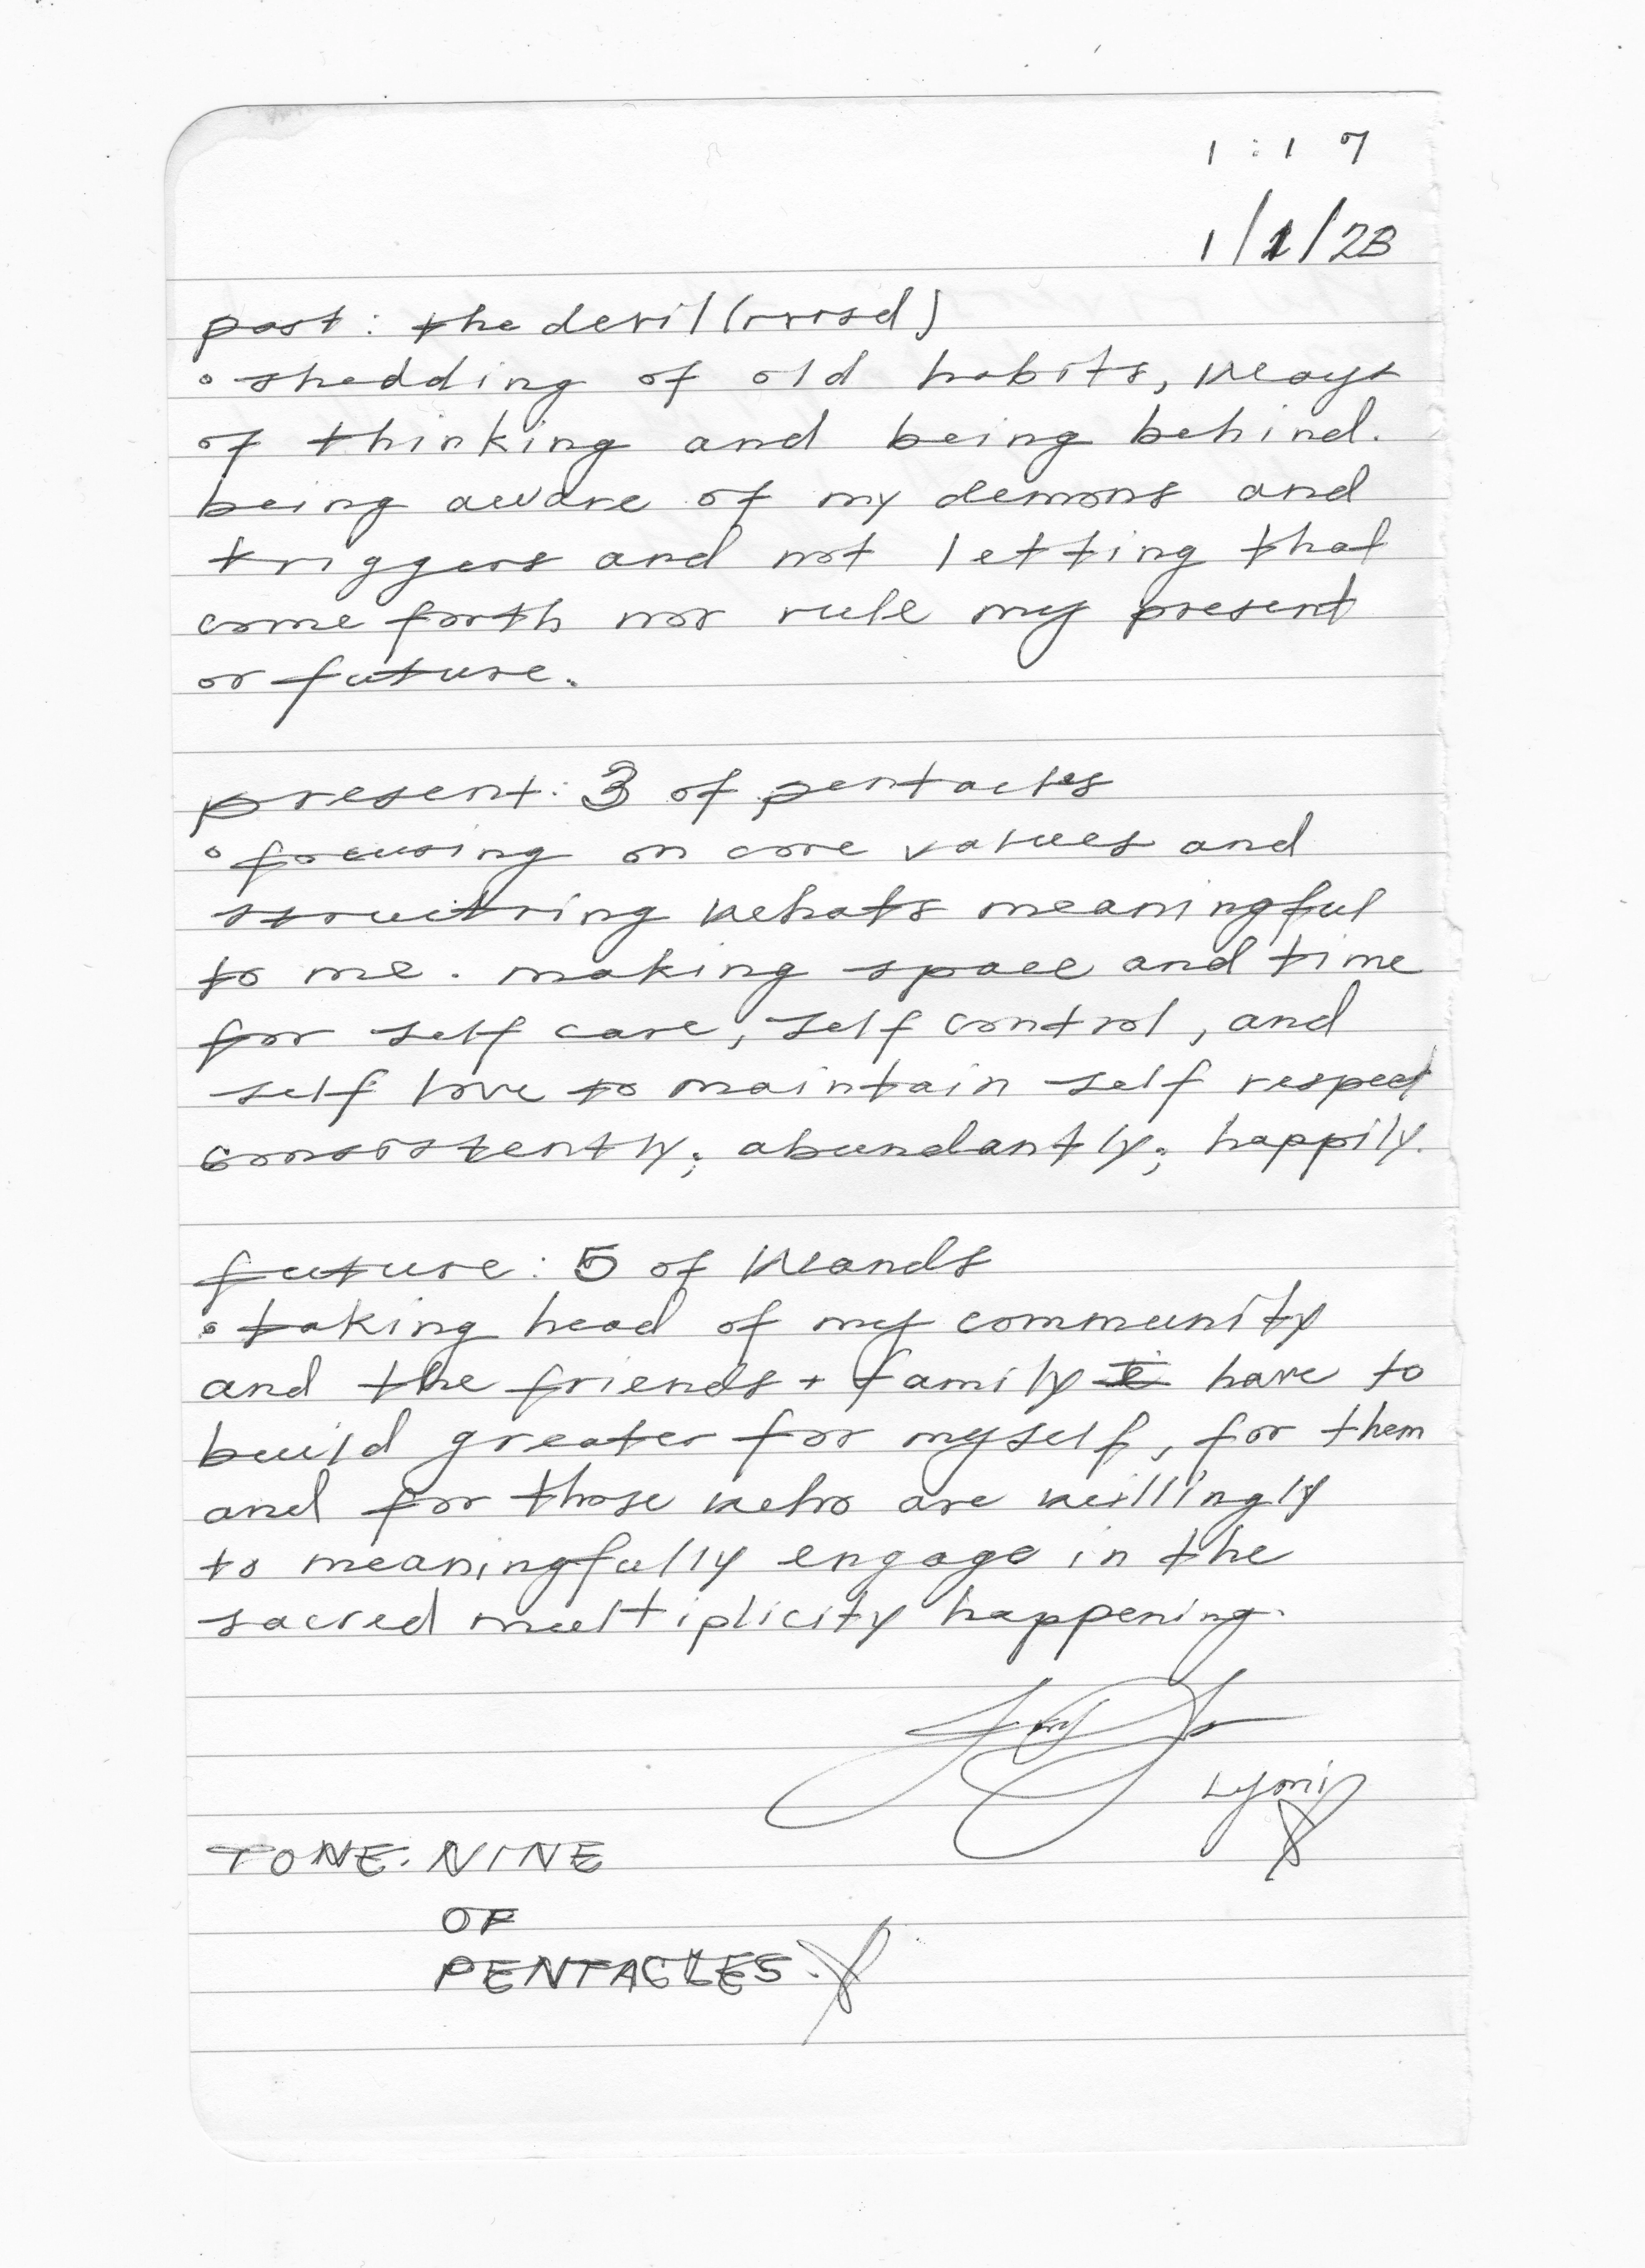 1:17
1/1/23
past: the devil (rvrsd)
• shedding of old habits, ways
of thinking and being behind.
being aware of my demons and
triggers and not letting that
come forth nor rule my present
or future.
present: 3 of pentacles
• focusing on core values and
structring whats meaningful
to me. making space and time
for self care, self control, and
self love to maintain self respect
consistently; abundantly; happily.
future: 5 of wands
• taking head of my community
and the friends + family i have to
build greater for myself, for them
and for those who are willingly
to meaningfully engage in the
sacred multiplicity happening.
TONE: NINE
OF
PENTACLES.